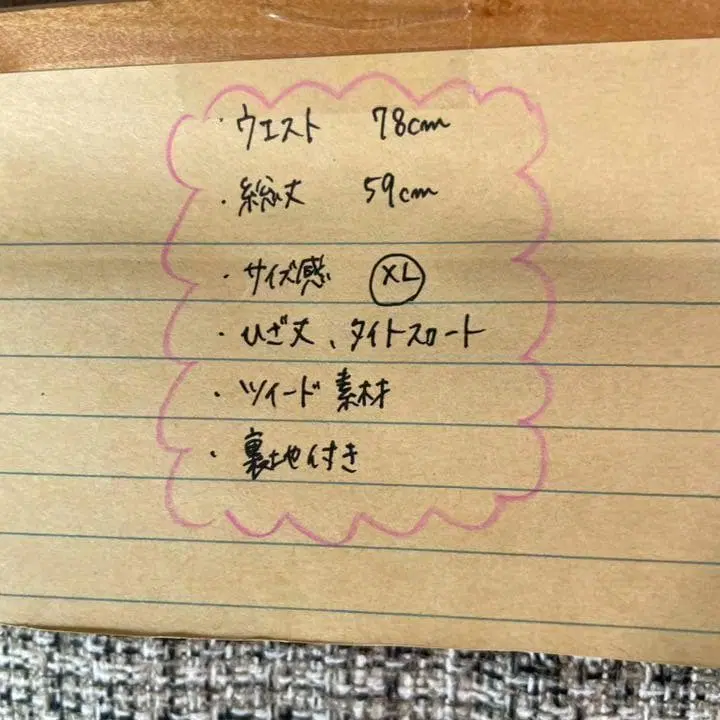 ・ウエスト 78cm
・総丈 59cm
・サイズ感 XL
・ひざ丈、タイトスカート
・ツイード素材
・裏地付き